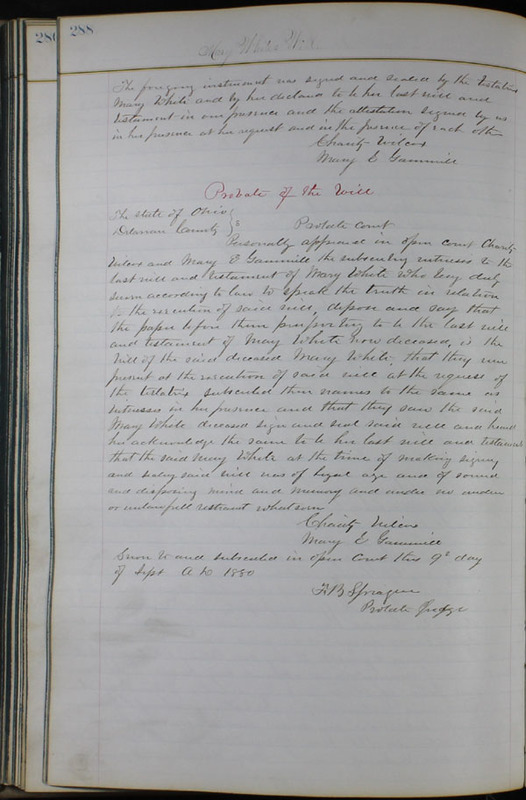 286
288
Mary White's Will
The foregoing instrument was signed and sealed by the testatrix
Mary White and by her declared to be her last will and
testament in our presence and the attestation signed by us
in her presence at her request and in the presence of each other
Charity Wilcox
Mary E Gammill
Probate of the Will
The State of Ohio
Delaware County } s Probate Court
Personally appeared in open court Charity
Wilcox and Mary E Gammill the subscribing witnesses to the
last will and testament of Mary White who being duly
sworn according to law to speak the truth in relation
to the execution of said will, depose and say that
the paper before them purporting to be the last will
and testament of Mary White now deceased, is the
will of the said deceased Mary White that they were
present at the execution of said will at the request of
the testatrix subscribed their names to the same as
witnesses in her presence and that they saw the said
Mary White deceased sign and seal said will and heard
her acknowledge the same to be her last will and testament
that the said Mary White at the time of making signing
and sealing said will was of legal age and of sound
and disposing mind and memory and under no undue
or unlawfull restraint whatsoever
Charity Wilcox
Mary E Gammill
Sworn to and subscribed in open Court this 9th day
of Sept A D 1880
F B Sprague
Probate Judge